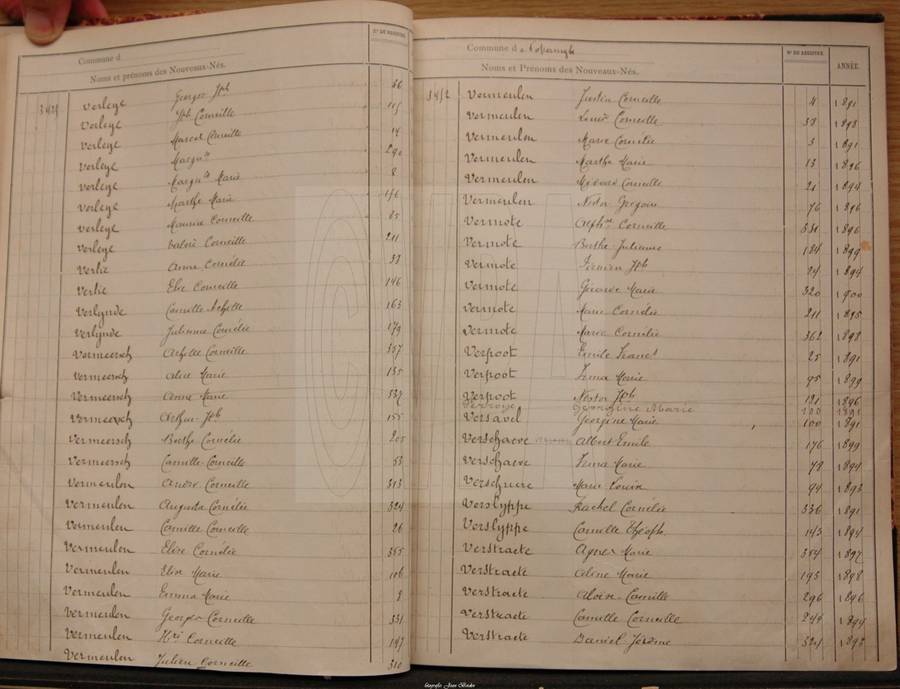 Commune d
Noms et prénoms des Nouveaux-Nés.
N° DU REGISTRE
Verleye Georges Jph 66
Verleye Jph Corneille 115
Verleye Marcel Camille 14
Verleye Margte 290
Verleye Margte Marie 8
Verleye Marthe Marie 156
Verleye Maurice Corneille 85
Verleye Valère Corneille 211
Verlie Anna Cornélie 33
Verlie Elie Corneille 146
Verlynde Camille Achille 163
Verlynde Julienne Cornélie 179
Vermeersch Achille Corneille 357
Vermeersch Alice Marie 135
Vermeersch Anna Marie 332
Vermeersch Arthur Jph 155
Vermeersch Berthe Cornélie 205
Vermeersch Camille Corneille 53
Vermeulen André Corneille 313
Vermeulen Augusta Cornélie 324
Vermeulen Camille Corneille 26
Vermeulen Elise Cornélie 355
Vermeulen Elise Marie 106
Vermeulen Emma Marie 3
Vermeulen Georges Corneille 331
Vermeulen Hri Corneille 147
Vermeulen Julien Corneille 310
Commune de
Noms et Prénoms des Nouveaux-Nés.
N° DU REGISTRE
ANNÉE
Vermeulen Justin Corneille 4 1891
Vermeulen Louis Corneille 38 1898
Vermeulen Marie Cornélie 3 1891
Vermeulen Marthe Marie 13 1896
Vermeulen Médard Corneille 21 1894
Vermeulen Nestor Grégoire 76 1896
Vermote Alphse Corneille 331 1896
Vermote Berthe Julienne 184 1899
Vermote Firmin Jph 24 1894
Vermote Germaine Marie 320 1900
Vermote Marie Cornélie 211 1895
Vermote Marie Cornélie 362 1898
Verpoot Emile 25 1891
Verpoot Irma Marie 95 1899
Verpoot Nestor Jph 131 1896
Georgine Marie
Versavel Georgine Marie 100 1891
Verschaeve Albert Emile 176 1899
Verschaeve Irma Marie 78 1894
Verschuere Marie Louise 94 1893
Verslyppe Rachel Cornélie 336 1891
Verslyppe Camille Théoph. 143 1894
Verstraete Agnes Marie 354 1897
Verstraete Celine Marie 195 1898
Verstraete Aloïse Camille 296 1896
Verstraete Camille Corneille 244 1894
Verstraete Daniel Jérôme 324 1898